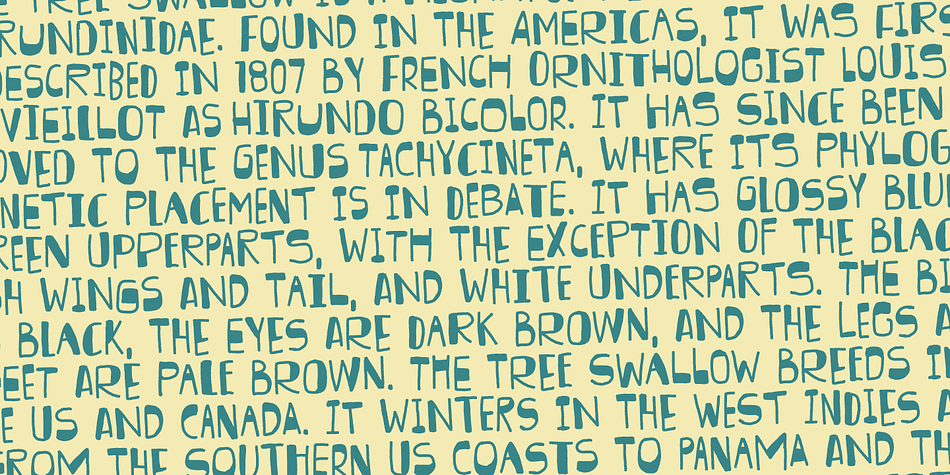 TREE SWALLOW IS A
RUNDINIDAE. FOUND IN THE AMERICAS, IT WAS FIRS
DESCRIBED IN 1807 BY FRENCH ORNITHOLOGIST LOUIS
VIEILLOT AS HIRUNDO BICOLOR. IT HAS SINCE BEEN
OVED TO THE GENUS TACHYCINETA, WHERE ITS PHYLOG
NETIC PLACEMENT IS IN DEBATE. IT HAS GLOSSY BLU
REEN UPPERPARTS, WITH THE EXCEPTION OF THE BLAC
SH WINGS AND TAIL, AND WHITE UNDERPARTS. THE BI
BLACK, THE EYES ARE DARK BROWN, AND THE LEGS A
EET ARE PALE BROWN. THE TREE SWALLOW BREEDS I
E US AND CANADA. IT WINTERS IN THE WEST INDIES A
FROM THE SOUTHERN US COASTS TO PANAMA AND TH